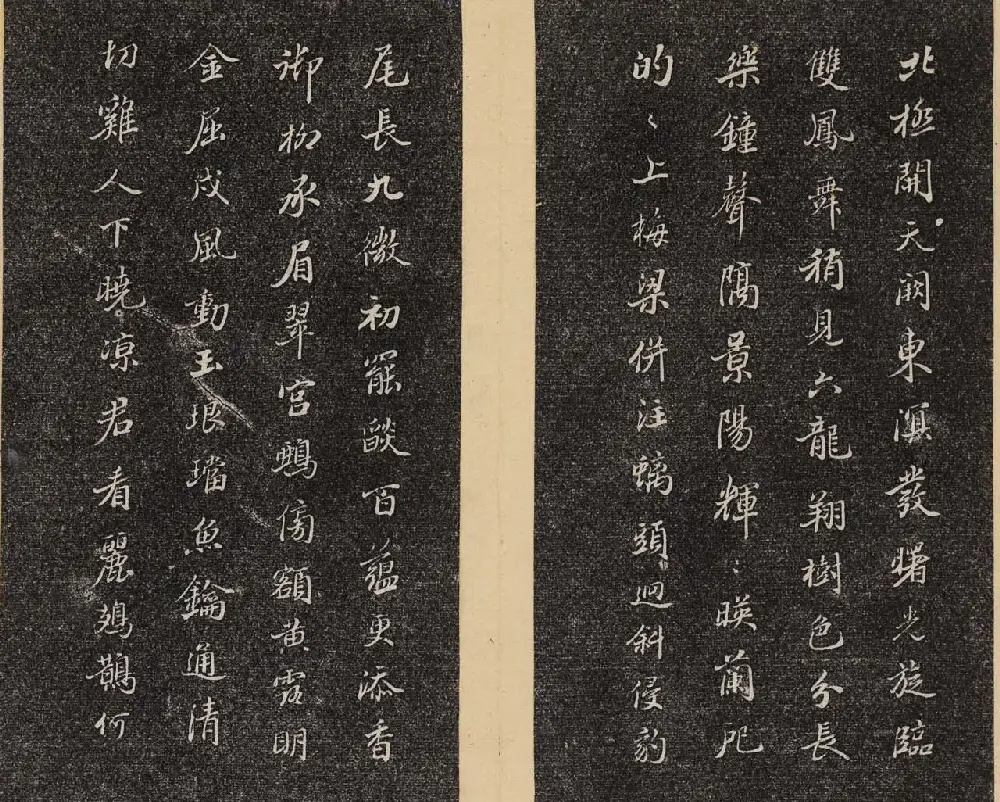 北極開天闕東溟發曙光旋臨
雙鳳舞稍見六龍翔樹色分長
樂鐘聲隔景陽輝〻暎蘭戺
的〻上梅梁併注螭頭迴斜侵豹
尾長九微初罷燄百蘊更添香
御柳承眉翠宮鵶傍額黃露明
金屈戌風動玉埌璫魚鑰通清
切雞人下曉凉君看麗鳷鵲何